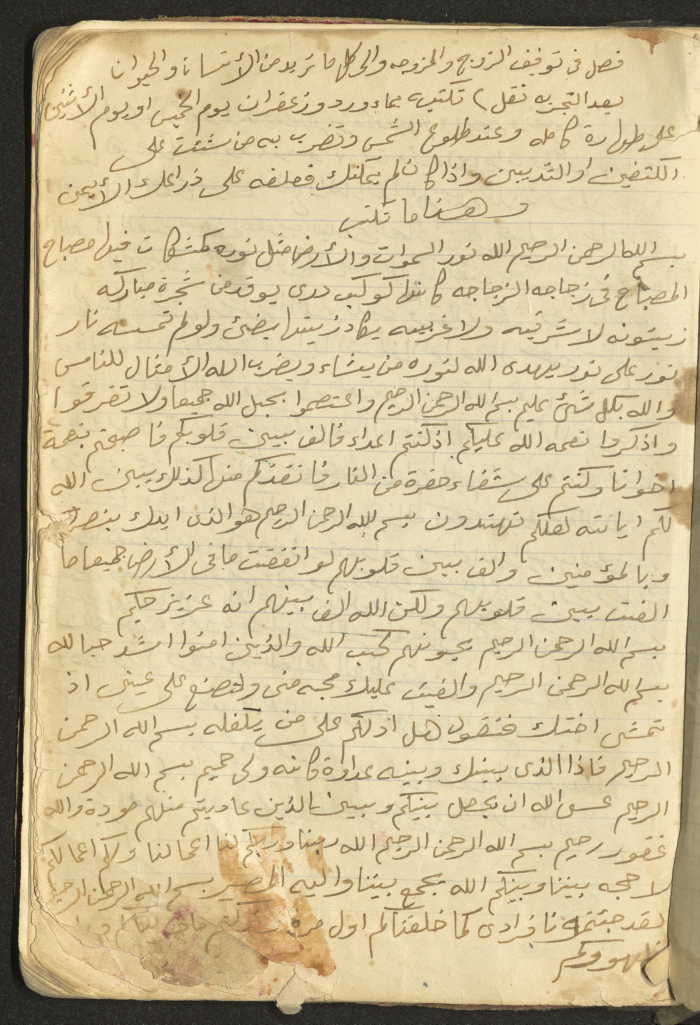 فصل فى توفيق الزوج والزوجه والى كل ما تريد من الأنسان والحيوان
بعد التجربه نقل تكتب بماء ورد وزعفران يوم الخميس او يوم الأثنين
على طهارة كامله وعند طلوع الشمس وتضرب به من شئت على
الكتفين أو الثديين واذا كان لم يمكنك فعلقه على ذراعك الأيمن
وهذا ما تكتب
بسم الله الرحمن الرحيم الله نور السموات والأرض مثل نوره كمشكات فيها مصباح
المصباح فى زجاجه الزجاجه كانها كوكب درى يوقد من شجرة مباركه
زيتونه لا شرقيه ولا غربيه يكاد زيتها يضئ ولو لم تمسسه نار
نور على نور يهدى الله لنوره من يشاء ويضرب الله الأمثال للناس
والله بكل شئ عليم بسم الله الرحمن الرحيم واعتصموا بحبل الله جميعا ولا تفرقوا
واذكروا نعمه الله عليكم اذ كنتم اعداء فالف بين قلوبكم فاصبحتم بنعمة
اخوانا وكنتم على شفاء حفرة من النار فانقذكم منها كذلك يبين الله
لكم اياته لعلكم تهتدون بسم الله الرحمن الرحيم هو الذى ايدك بنصره
وبالمؤمنين والف بين قلوبهم لو انفقت ما فى الأرض جميعا ما
الفت بين قلوبهم ولكن الله الف بينهم انه عزيز حكيم
بسم الله الرحمن الرحيم يحبونهم كحب الله والذين امنوا اشد حبا لله
بسم الله الرحمن الرحيم والقيت عليك محبه منى ولتصنع على عينى اذ
تمشى اختك فتقول هل ادلكم على من يكفله بسم الله الرحمن
الرحيم فاذا الذى بينك وبينه عداوة كانه ولى حميم بسم الله الرحمن
الرحيم عسى الله ان يجعل بينكم وبين الذين عاديتم منهم مودة والله
غفور رحيم بسم الله الرحمن الرحيم الله ربنا وربكم لنا اعمالنا ولكم اعمالكم
لا حجه بيننا وبينكم الله يجمع بيننا واليه المصير بسم الله الرحمن الرحيم
لقد جئتمونا فرادى كما خلقناكم اول مرة وتركتم ما خولناكم
ظهوركم